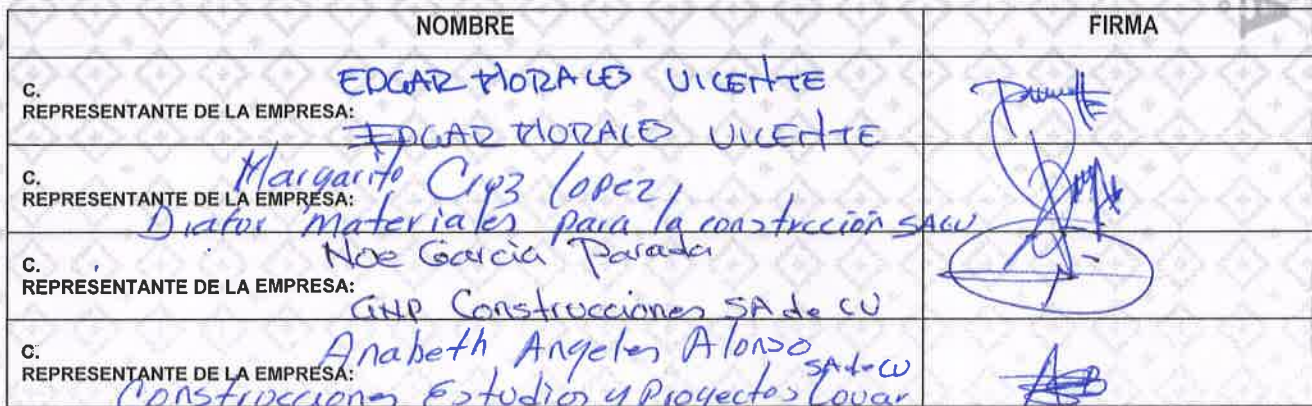 NOMBRE FIRMA
C. EDGAR MORALES VICENTE
REPRESENTANTE DE LA EMPRESA:
EDGAR MORALES VICENTE
C. Margarito Cruz Lopez
REPRESENTANTE DE LA EMPRESA:
materiales para la constrcción SACV
C. Noe Garcia Parada
REPRESENTANTE DE LA EMPRESA:
GNP Construcciones SA de CV
C. Anabeth Angeles Alonso
REPRESENTANTE DE LA EMPRESA: SA de CV
Construcciones Estudios y Proyectos Lovar